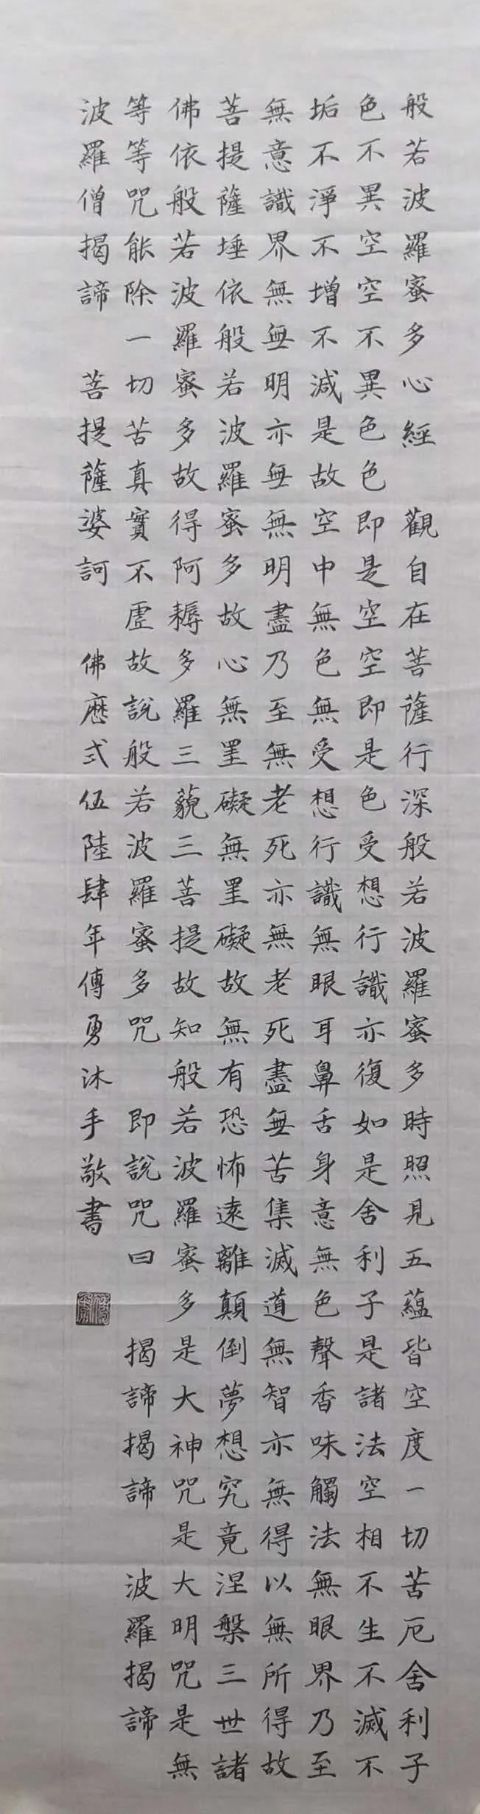 般若波羅蜜多心經　觀自在菩薩行深般若波羅蜜多時照見五蘊皆空度一切苦厄舍利子
色不異空空不異色色即是空空即是色受想行識亦復如是舍利子是諸法空相不生不滅不
垢不淨不增不減是故空中無色無受想行識無眼耳鼻舌身意無色聲香味觸法無眼界乃至
無意識界無無明亦無無明盡乃至無老死亦無老死盡無苦集滅道無智亦無得以無所得故
菩提薩埵依般若波羅蜜多故心無罣礙無罣礙故無有恐怖遠離顛倒夢想究竟涅槃三世諸
佛依般若波羅蜜多故得阿耨多羅三藐三菩提故知般若波羅蜜多是大神咒是大明咒是無
等等咒能除一切苦真實不虛故說般若波羅蜜多咒　即說咒曰　揭諦揭諦　波羅揭諦
波羅僧揭諦　菩提薩婆訶　佛厯弍伍陸肆年傅勇沐手敬書